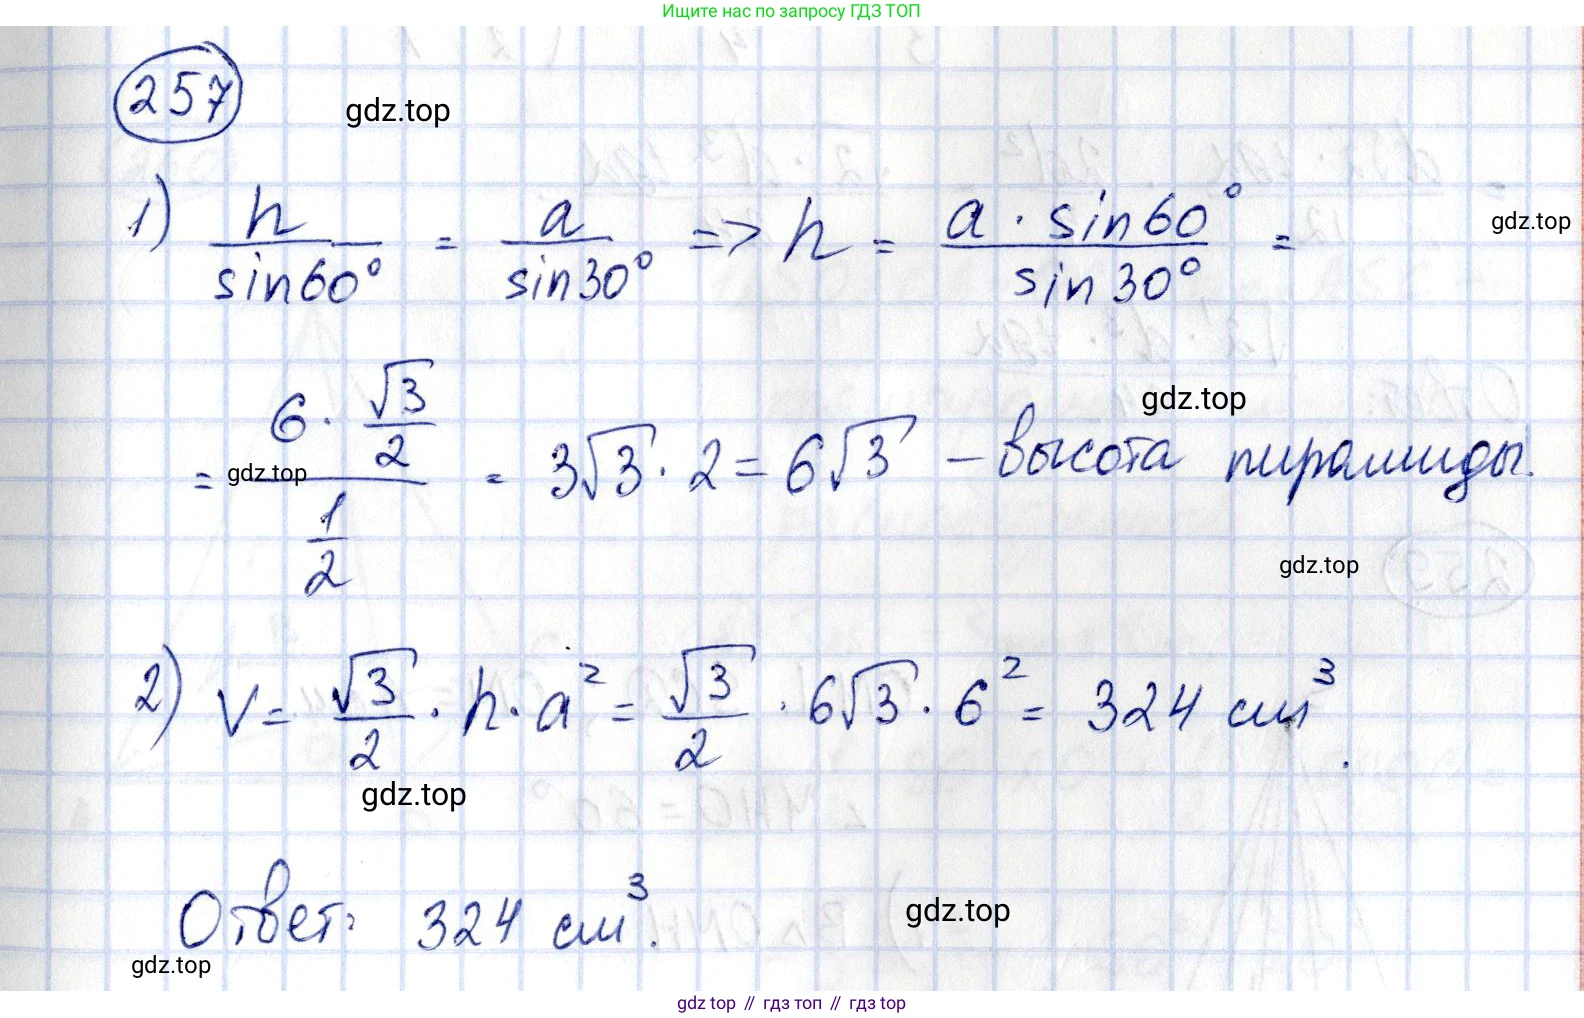 Ищите нас по запросу ГДЗ ТОП
257
gdz.top
1) h/sin60° = a/sin30° => h = (a · sin60°)/(sin30°) =
gdz.top
gdz.top
= (6 · √3/2)/(1/2) = 3√3 · 2 = 6√3 – высота пирамиды.
gdz.top
gdz.top
2) V = √3/2 · h · a² = √3/2 · 6√3 · 6² = 324 см³.
gdz.top
Ответ: 324 см³.
gdz.top
gdz.top
gdz top // гдз топ // гдз top